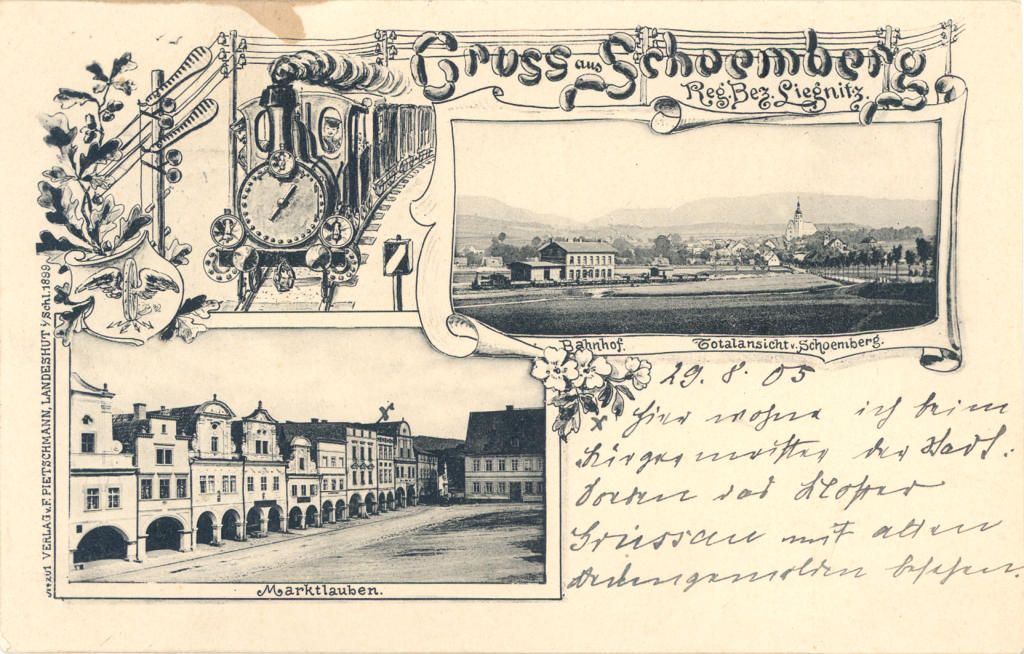 Gruss aus Schoemberg
Reg. Bez. Liegnitz.
Bahnhof. Totalansicht v. Schoemberg.
29. 8. 05
Hier wohne ich beim
Bürgermeister der Stadt.
das Kloster
Grüssau mit alten
besehen.
Marktlauben.
VERLAG v. F. PIETSCHMANN, LANDESHUT i/Schl. 1899